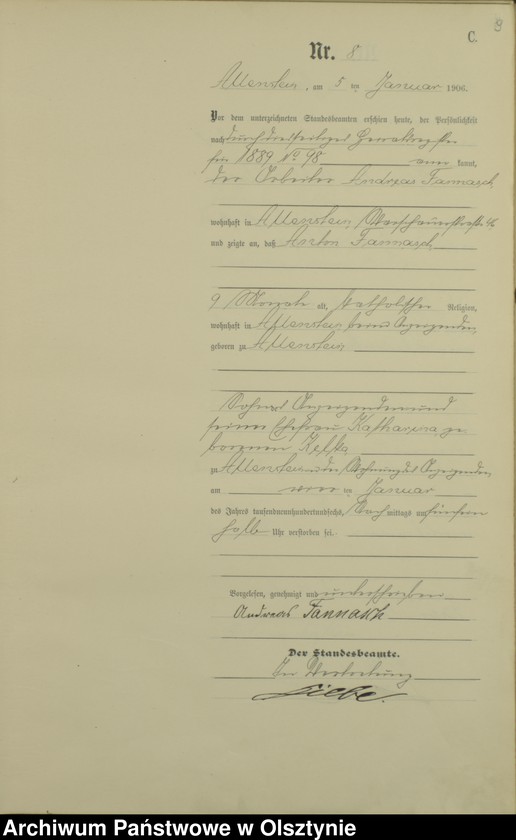 8
C.
Nr. 8
Allenstein, am 5 ten Januar 1906.
Vor dem unterzeichneten Standesbeamten erschien heute, der Persönlichkeit
nach durch diesseitiges
für 1889 No 98 aner kannt,
der Arbeiter Andreas Tannasch
wohnhaft in Allenstein,
und zeigte an, daß Anton Tannasch
9 Monate alt, katholischer Religion,
wohnhaft in Allenstein beim Anzeigenden,
geboren zu Allenstein
Sohn des Anzeigenden und
seiner Ehefrau Katharina ge
borenen
zu Allenstein in der Wohnung des Anzeigenden,
am ten Januar
des Jahres tausendneunhundertundsechs, Nach mittags um
halb Uhr verstorben sei.
Vorgelesen, genehmigt und unterschrieben
Andreas Tannasch
Der Standesbeamte.
In Vertretung
Archiwum Państwowe w Olsztynie